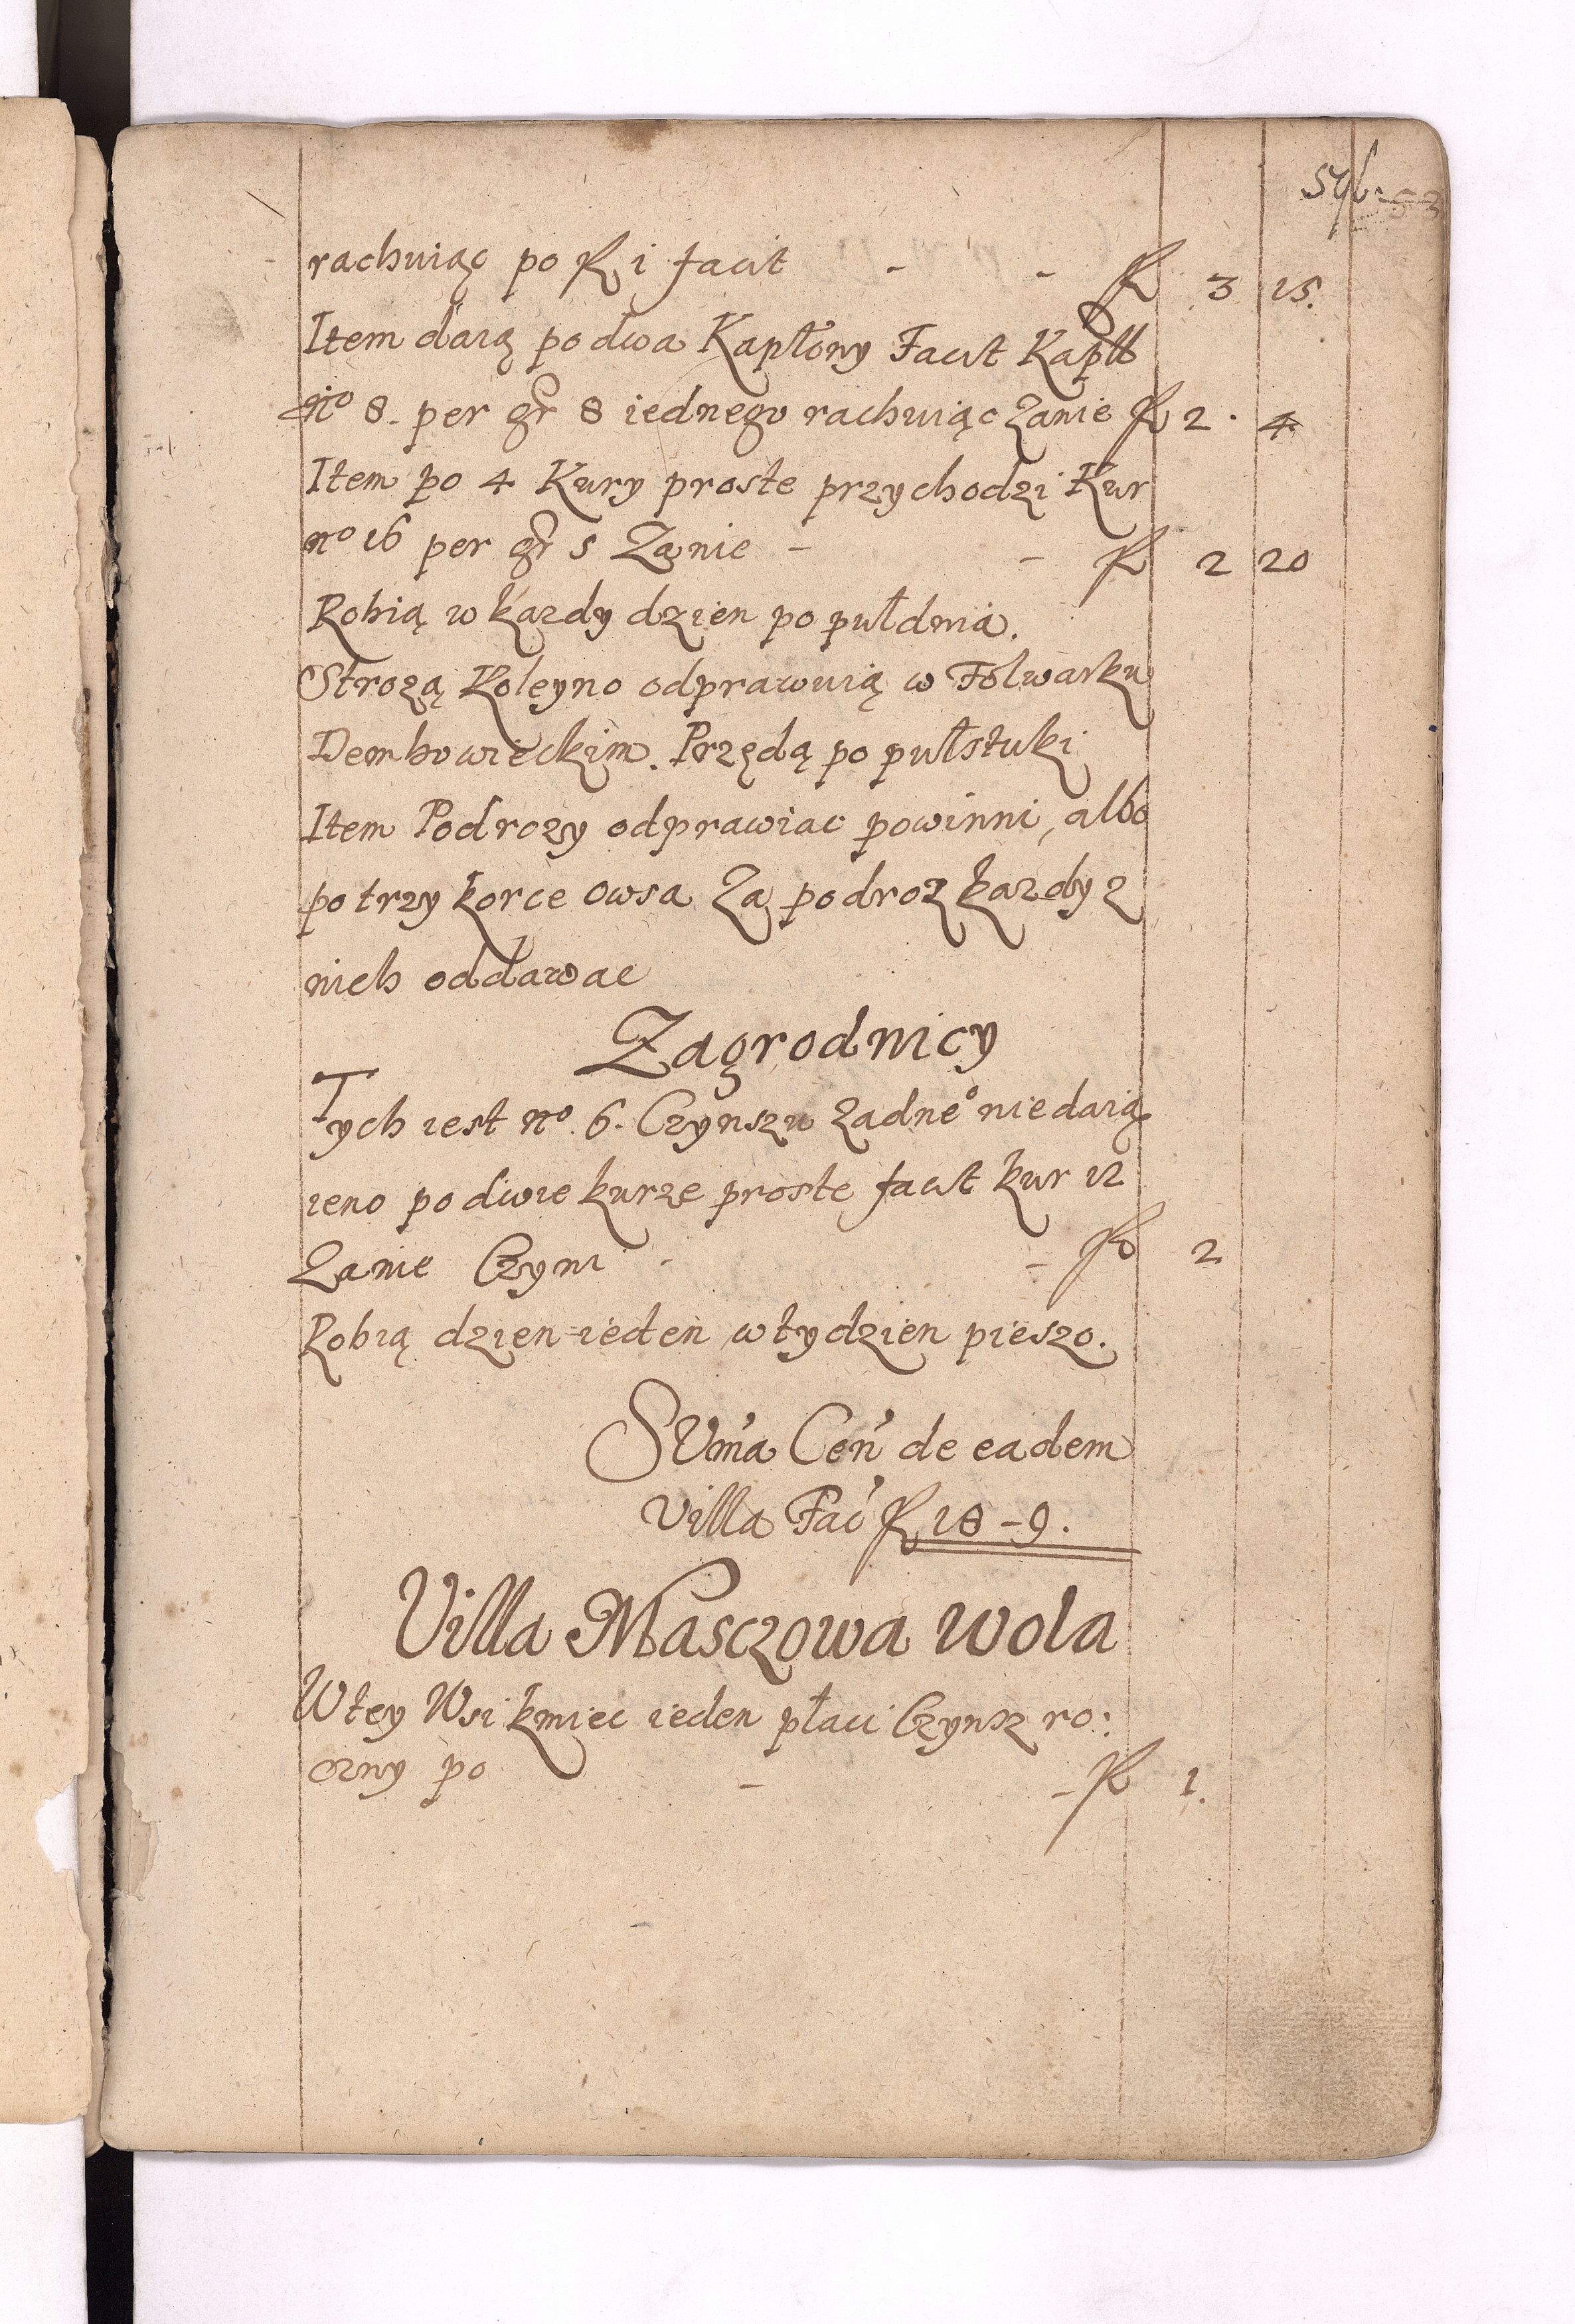 rachuiąc po fl i facit - - fl 3 15.
Item daią po dwa Kapłony Facit Kapll
no 8. per gr 8 iednego rachuiąc Zanie fl 2. 4
Item po 4 Kury proste przychodzi Kur
no 16 per gr 5 Zanie - - fl 2 20
Robią w kazdy dzien po puł dnia.
Strozą Koleyno odprawuią w Folwarku
Dembowieckim. Przędą po pułsztuki
Item Podrozy odprawiac powinni, albo
po trzy korce owsa Za podroz kazdy z
nich oddawac
Zagrodnicy
Tych iest no. 6. Czynszu zadne° nie daią
ieno po dwie kurze proste facit kur 12
Zanie Czyni - - fl 2
Robią dzien ieden w tydzien pieszo.
Sum̃a Ceñ de eadem
Villa Fac̃ fl 18 - 9.
Villa Masczowa Wola
W tey Wsi kmiec ieden płaci Czynsz ro:
czny po - - fl 1.